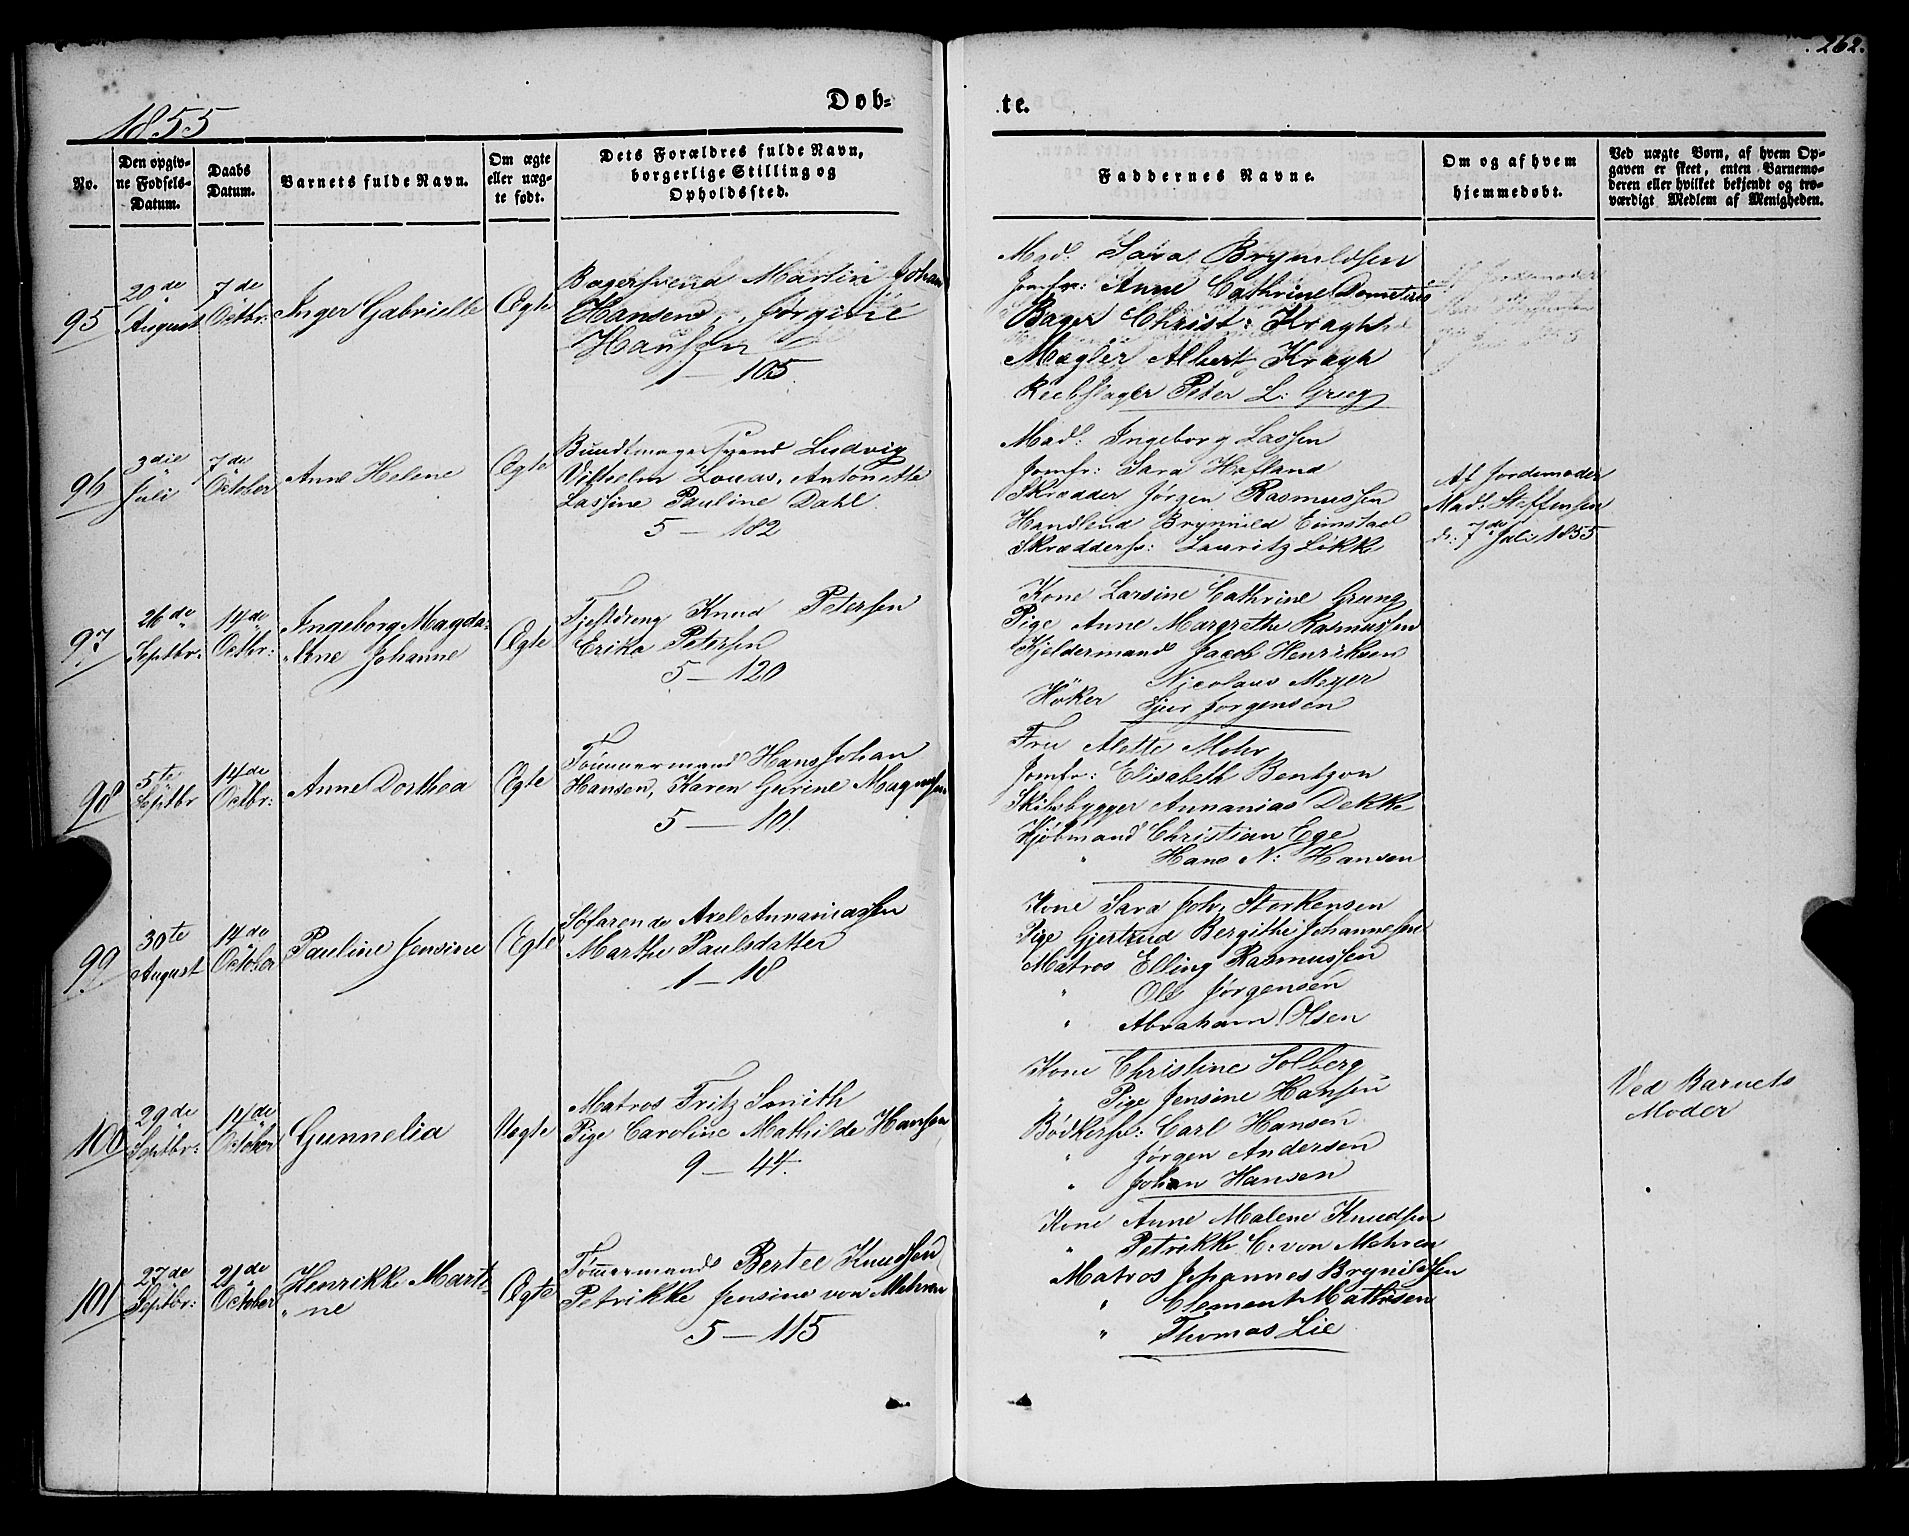 262.
1855
Døb-
te.
No.
Den opgiv-
ne Fødsels-
Datum.
Daabs
Datum.
Barnets fulde Navn.
Om ægte
eller uæg-
te født.
Dets Forældres fulde Navn,
borgerlige Stilling og
Opholdssted.
Faddernes Navne.
Om og af hvem
hjemmedøbt.
Ved uægte Børn, af hvem Op-
gaven er skeet, enten Barnemo-
deren eller hvilket bekjendt og tro-
værdigt Medlem af Menigheden.
95
20de
August
7de
Octbr:
Inger Gabrielle
Ægte
Bagersvend Martin Johan
Hansen,
Hansen
1 — 105.
Mad: Sara Brynildsen
Jomfr: Anne Cathrine
Bager Christ: Kragh
Mægler Albert Kragh
Reebslager Peter L: Grieg
96
3die
Juli
7de
October
Anne Helene
Ægte
Bundtmagersvend Ludvig
Vilhelm Loucas, Antonette
Lassine Pauline Dahl.
5 — 182
Mad: Ingeborg Lassen
Jomfr: Sara Hafland
Skrædder Jørgen Rasmussen
Handlend Brynild Eimstad
Skræddersv: Lauritz Løkke
Af Jordemoder
Mad. Steffensen
d: 7de Juli 1855
97
26de
Septbr:
14de
Octbr:
Ingeborg Magda-
lene Johanne
Ægte
Knud Petersen
Erika Petersen
5 — 120
Kone Larsine Cathrine Grung
Pige Anne Margrethe Rasmussen
Kjeldermand Jacob Henriksen
" Nicolaus Meyer
Høker Sjur Jørgensen
98
5te
Septbr
14de
Octbr:
Anne Dorthea
Ægte
Tømmermand Hans Johan
Hansen, Karen Gurine Magnusen
5 — 101.
Fru Alette Mohr
Jomfr: Elisabeth Bentzon
Skibsbygger Annanias Dekke
Kjøbmand Christian Ege
" Hans N: Hansen
99
30te
August
14de
October
Pauline Jensine
Ægte
Søfarende Axel Annaniassen
Marthe Paulsdatter
1 — 18
Kone Sara Joh: Storkensen
Pige Gjertrud Bergithe Johannesen
Matros Elling Rasmussen
" Ole Jørgensen
" Abraham Olsen
100
29de
Septbr:
14de
October
Gunnelia
Uægte
Matros Fritz Smith
Pige Caroline Mathilde Hansen
9 — 44.
Kone Christine Solberg
" Pige Jensine Hansen
Bødkersv: Carl Hansen
" Jørgen Andersen
" Johan Hansen
Ved Barnets
Moder
101
27de
Septbr:
21de
October
Henrikke Marti-
ne
Ægte
Tømmermand Bertel Knudsen
Petrikke Jensine von Mehren
5 — 115
Kone Anne Malene Knudsen
" Petrikke C: von Mehren
Matros Johannes Brynildsen
" Clement Mathisen
" Thomas Lie